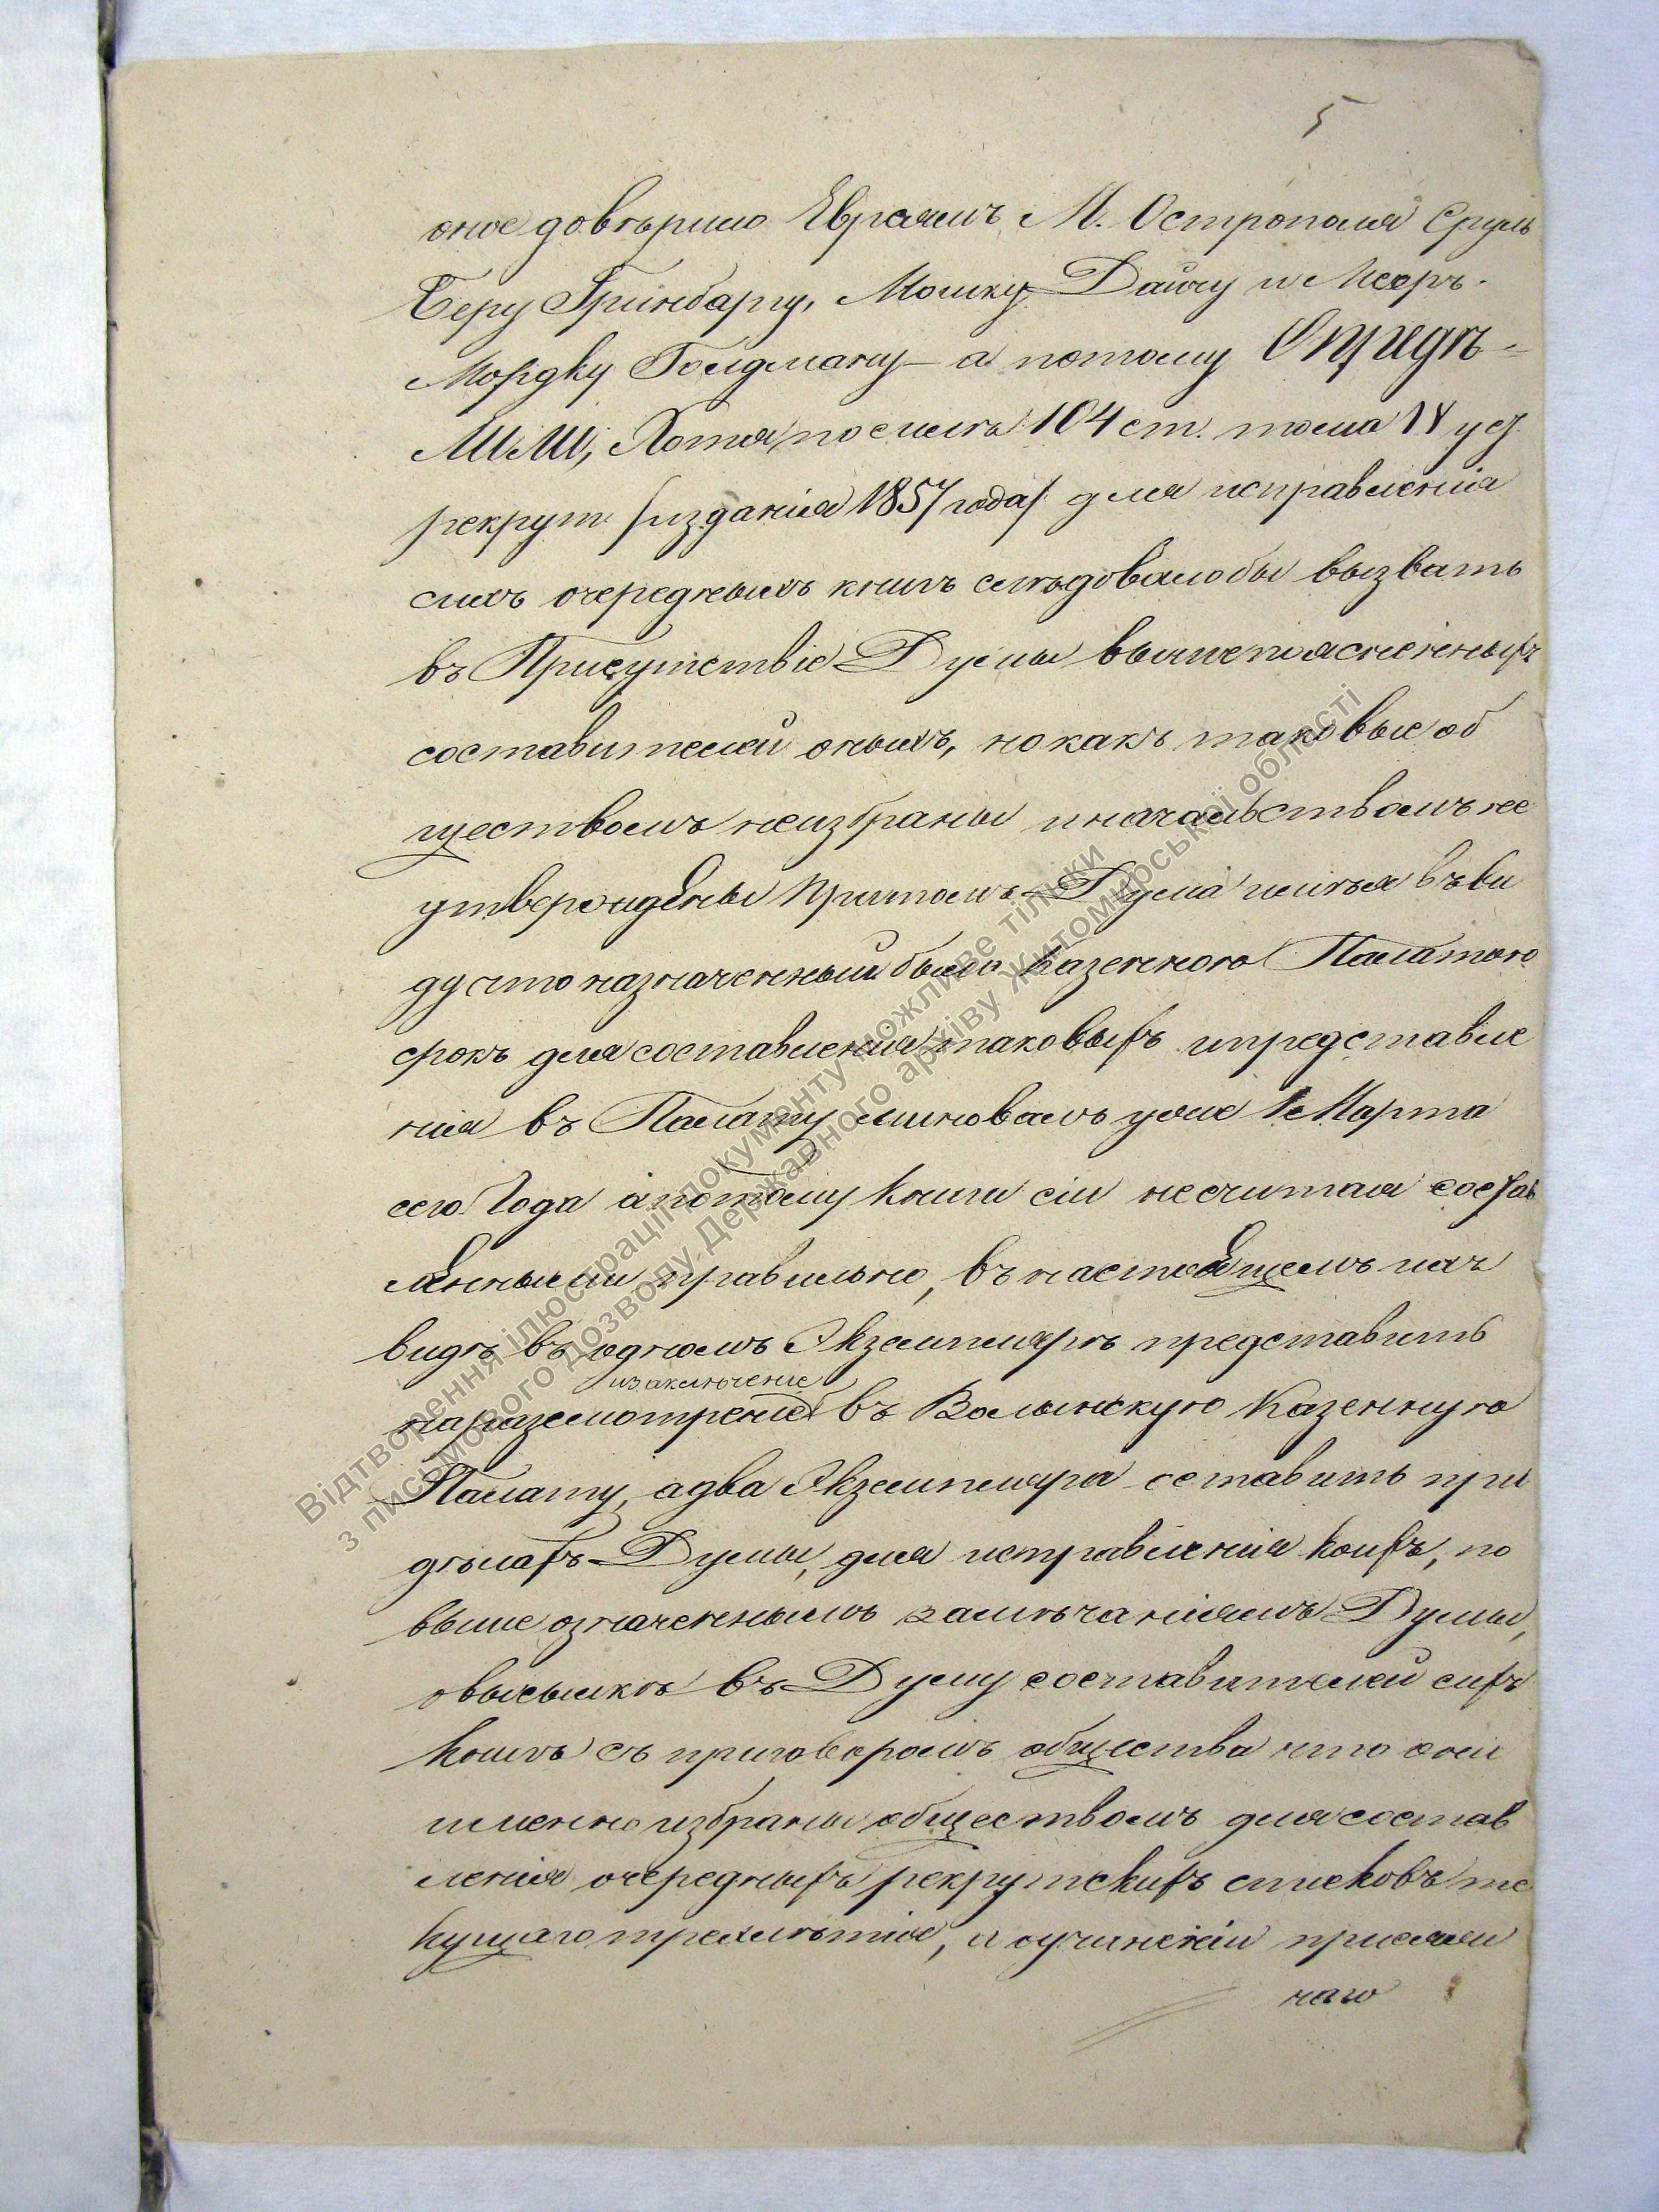 5
оное довѣрило Евреямъ М. Острополя Сруль
Беру Гринбаргу, Мошку Дайчу и Меер
Мордку Гоидману – а потому Опредѣ=
лили, Хотя по силѣ 104 ст. тома IV уст.
рекрут /изданія 1857 года/ для исправленія
сихъ очередныхъ книгъ слѣдовалобы вызвать
въ Присутствіе Думы вышепоясненныхъ
составителей оныхъ, но какъ таковые об
ществомъ неизбраны иначальствомъ не
утверждены Притомъ Дума имѣя въ ви
ду что назначенный былъ Казенною Палатою
срокъ для составленія таковыхъ ипредставле
нія въ Палату миновалъ уже 1 Марта
сего Года апотому Книги сіи несчитая состав
лѣнными правильно, въ настоящемъ ихъ
видѣ въ одномъ Экземплярѣ представить
изаключеніе
наразсмотреніе въ Волынскую Казенную
Палату, адва Экземпляра оставить при
дѣлахъ Думы, для исправленія коихъ, по
выше означеннымъ замѣчаніямъ Думы,
овысылкѣ въ Думу составителей сихъ
Книгъ съ приговоромъ общества что они
именно избраны обществомъ для состав
ленія очередныхъ рекрутскихъ списковъ те
кущаго трехлѣтія, и оучиненіи присяжн
наго
Відтворення ілюстрації документу можливе тільки
з письмового дозволу Державного архіву Житомирської області